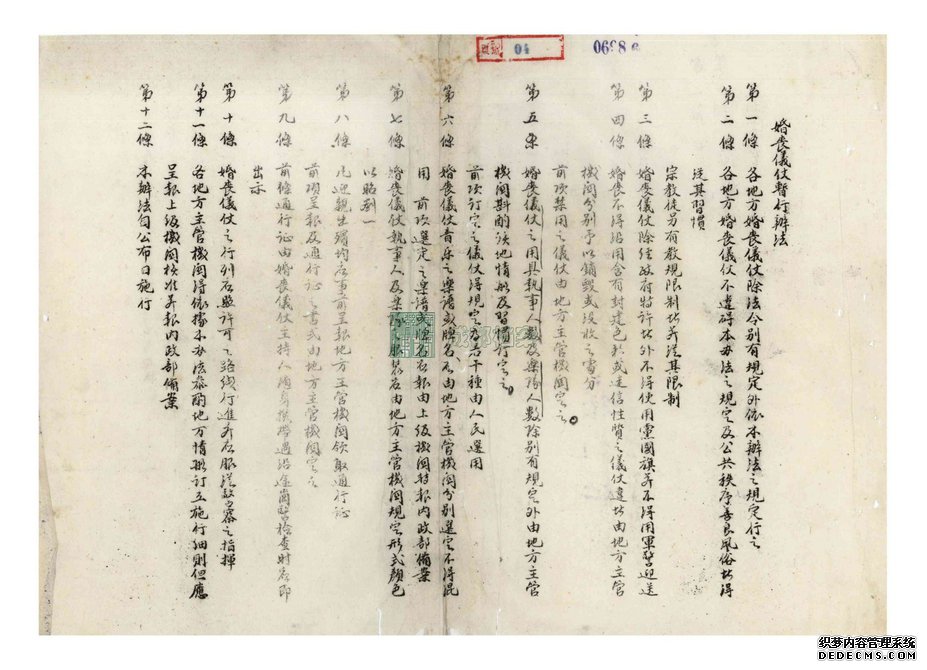 04
06986
婚喪儀仗暫行辦法
第一條 各地方婚喪儀仗除法令別有規定外依本辦法之規定行之
第二條 各地方婚喪儀仗不違碍本办法之規定及公共秩序善良風俗者得
從其習慣
宗教徒另有教規限制者并從其限制
第三條 婚喪儀仗除經政府特許者外不得使用黨國旗并不得用軍警迎送
第四條 婚喪不得沿用含有封建色彩或迷信性質之儀仗違者由地方主管
機関分别予以銷毀或没收之處分
前項禁用之儀仗由地方主管機関定之
第五條 婚喪儀仗之用具執事人人數及樂隊人數除别有規定外由地方主管
機関斟酌該地情形及習慣訂定之
前項訂定之儀仗得規定為若干種由人民選用
第六條 婚喪儀仗音乐之樂譜或牌名應由地方主管機関分别選定不得混
用 前項選定之樂譜或牌名應報由上級機関轉報内政部備案
第七條 婚喪儀仗執事人及樂隊之服裝應由地方主管機関規定形式顏色
以昭划一
第八條 凡迎親出殯均應事前呈報地方主管機関領取通行证
前項呈報及通行证之書式由地方主管機関定之
第九條 前條通行证由婚喪儀仗主持人随身携帶遇沿途崗警檢查時應即
出示
第十條 婚喪儀仗之行列應照許可之路線行進并應服從警察之指揮
第十一條 各地方主管機関得依據本办法参酌地方情形訂立施行細則但應
呈報上級機関核准并報内政部備案
第十二條 本辦法自公布日施行
织梦内容管理系统
DEDECMS.COM